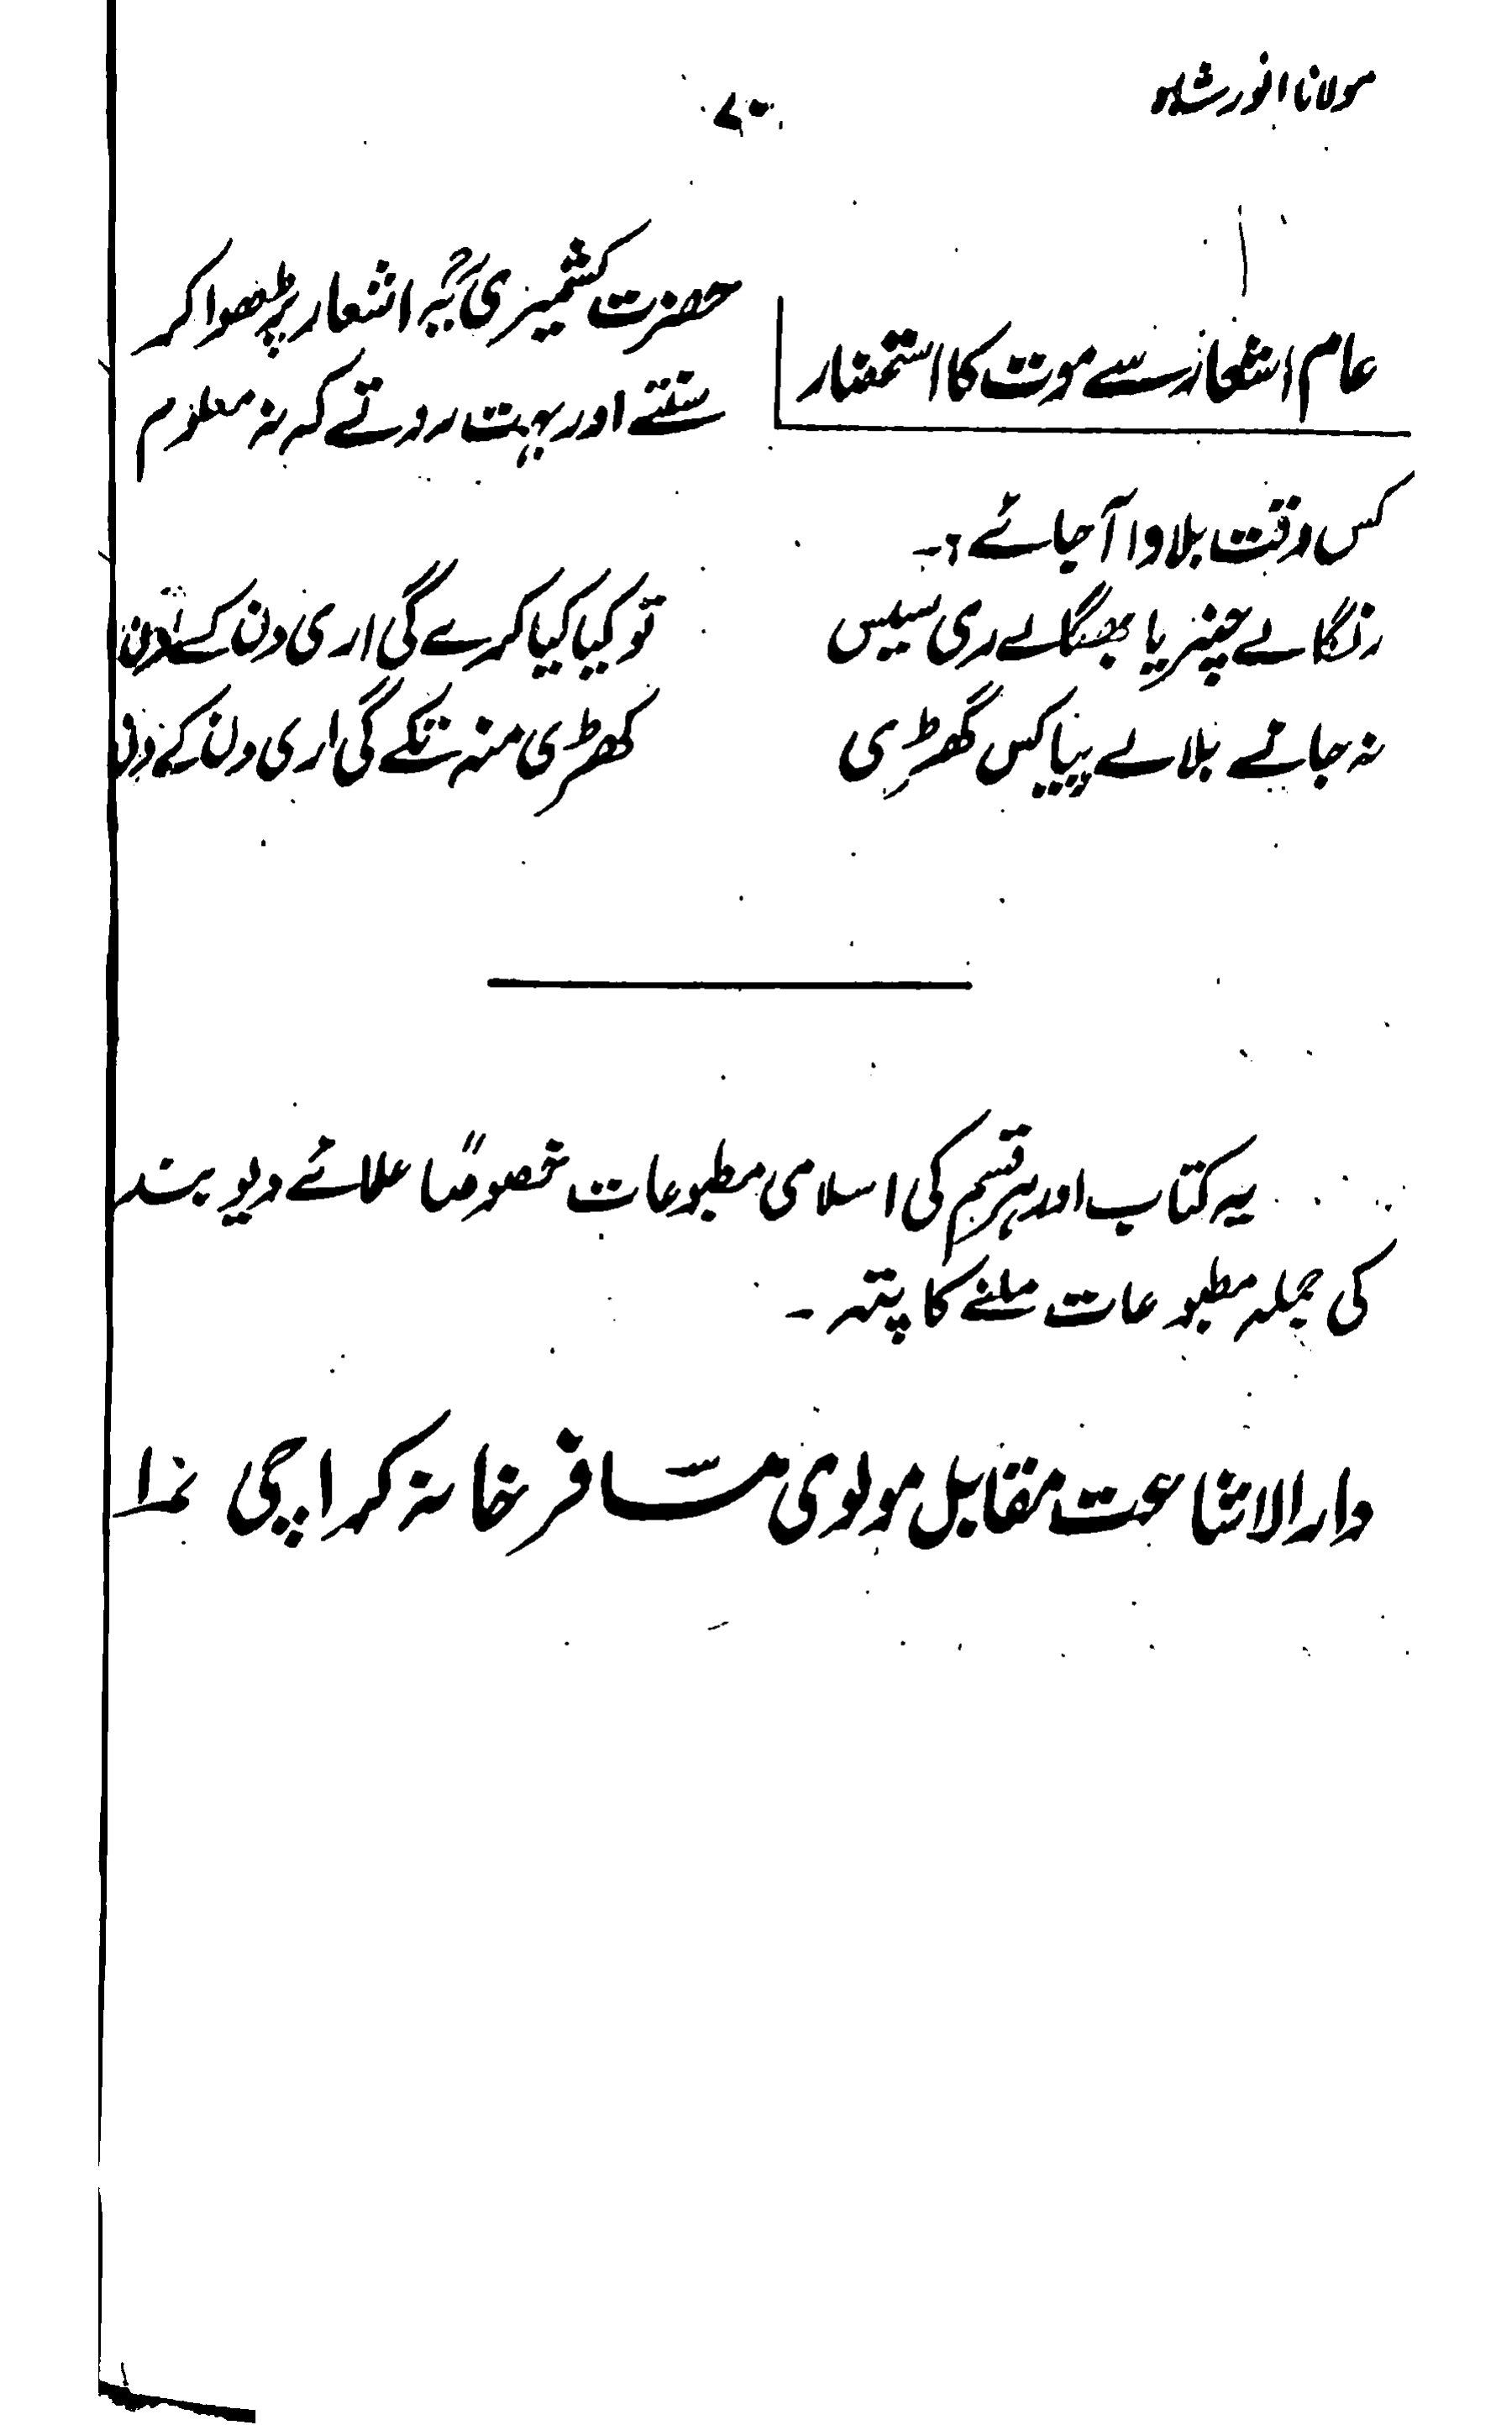 مولانا انور شاہ
۷۰
عام اشعار سے موت کا استحضار
حضرت کشمیریؒ یہ اشعار پڑھوا کر
سنتے اور بہت روتے کہ نہ معلوم
کس وقت بلاوا آجائے ؟۔
رنگا لے چنریا بھنگا لے ری سیس تو کیا کیا کرے گی اری دن کے دن
نہ جانے بلا لے پیا کس گھڑی کھڑی منہ تکے گی اری دن کے دن
یہ کتاب اور ہر قسم کی اسلامی مطبوعات خصوصًا علمائے دیوبند
کی جملہ مطبوعات ملنے کا پتہ ۔
دارالاشاعت مقابل مولوی مسافر خانہ کراچی نمبر ۱